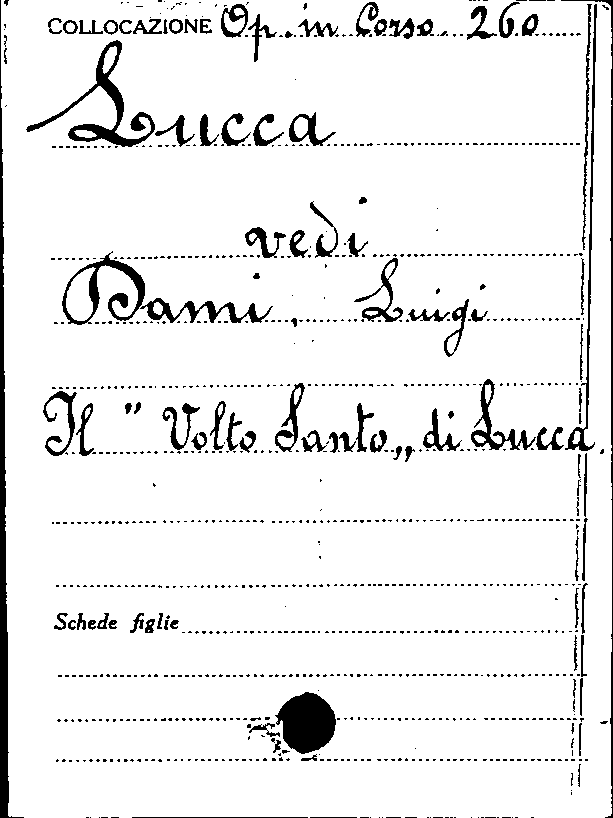 COLLOCAZIONE Op. in Corso. 260
Lucca
vedi
Dami, Luigi
Il " Volto Santo „ di Lucca.
Schede figlie